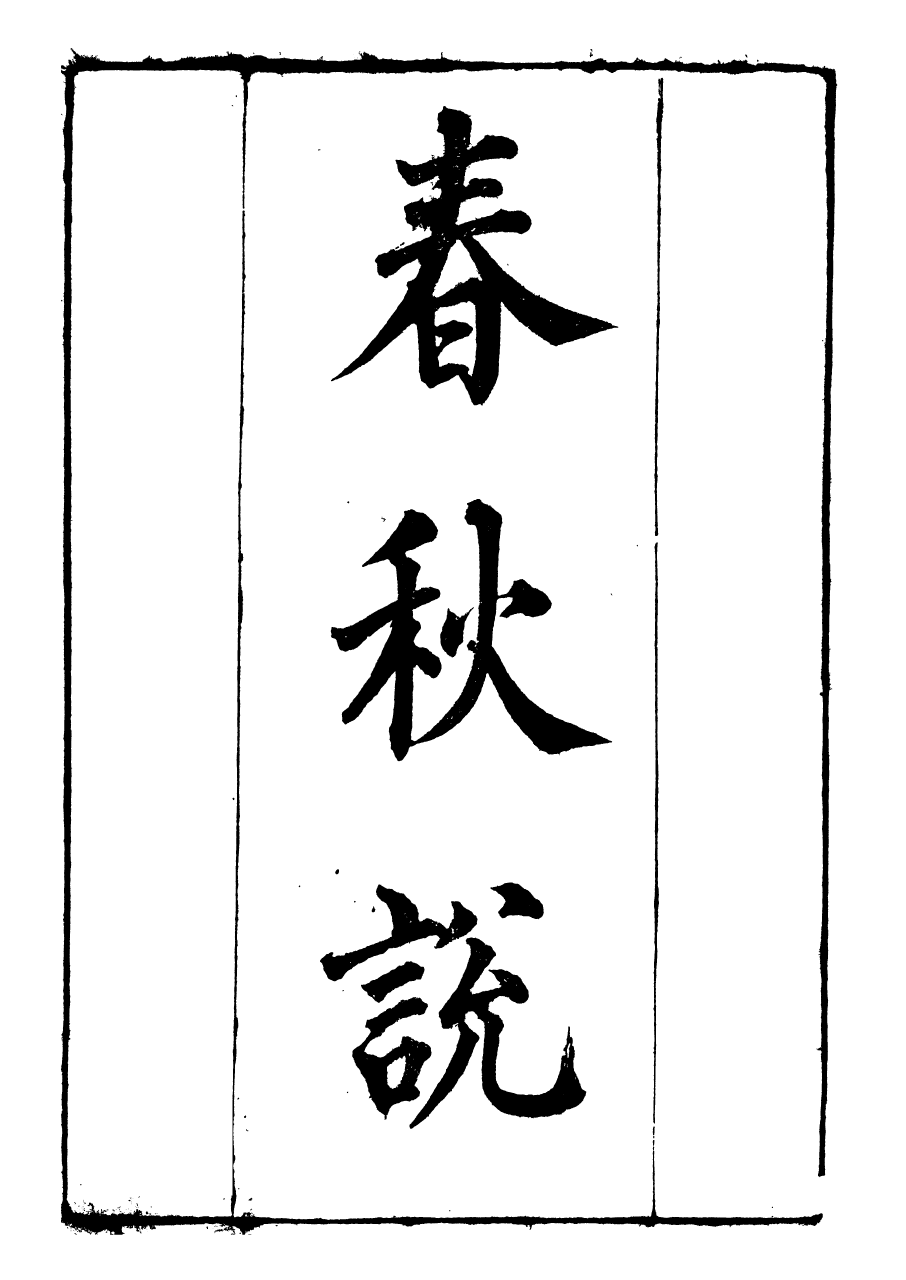 春秋說